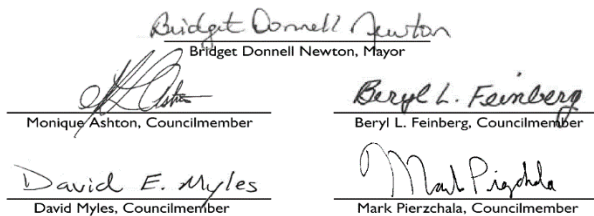 Bridget Donnell Newton
Bridget Donnell Newton, Mayor
Monique Ashton, Councilmember
Beryl L. Feinberg
Beryl L. Feinberg, Councilmember
David E. Myles
David Myles, Councilmember
Mark Pierzchala
Mark Pierzchala, Councilmember